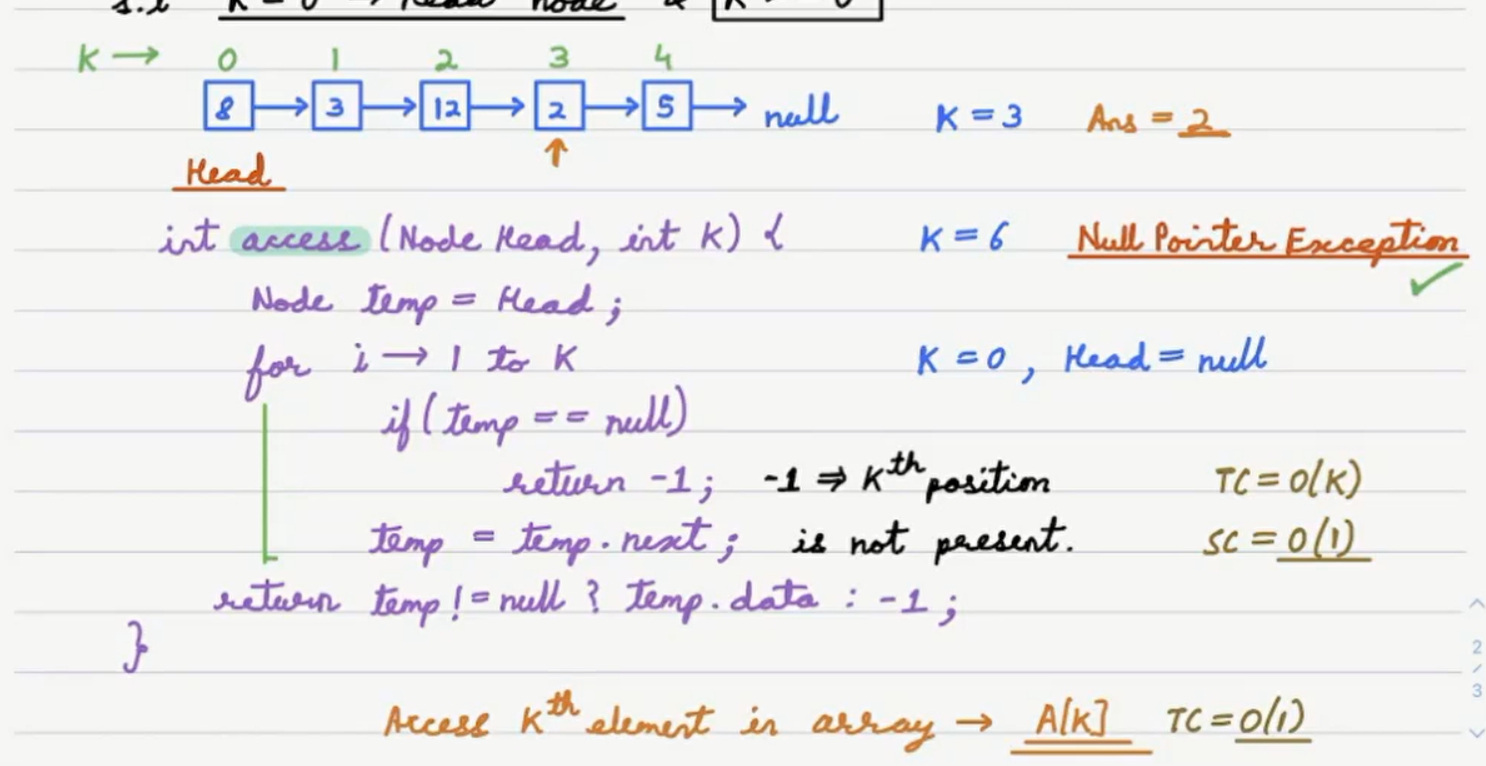 K = 0 → Head node & K >= 0
K → 0 1 2 3 4
8 → 3 → 12 → 2 → 5 → null K = 3 Ans = 2
↑
Head
int access (Node Head, int K) { K = 6 Null Pointer Exception ✓
Node temp = Head ;
for i → 1 to K K = 0 , Head = null
if ( temp == null)
return -1 ; -1 ⇒ Kth position TC = O(K)
temp = temp.next ; is not present. SC = O(1)
return temp != null ? temp.data : -1 ;
}
Access Kth element in array → A[K] TC = O(1)
2
/
3